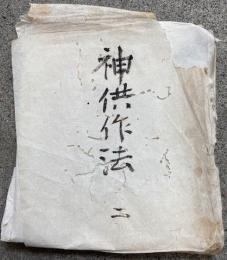 神供作法 二